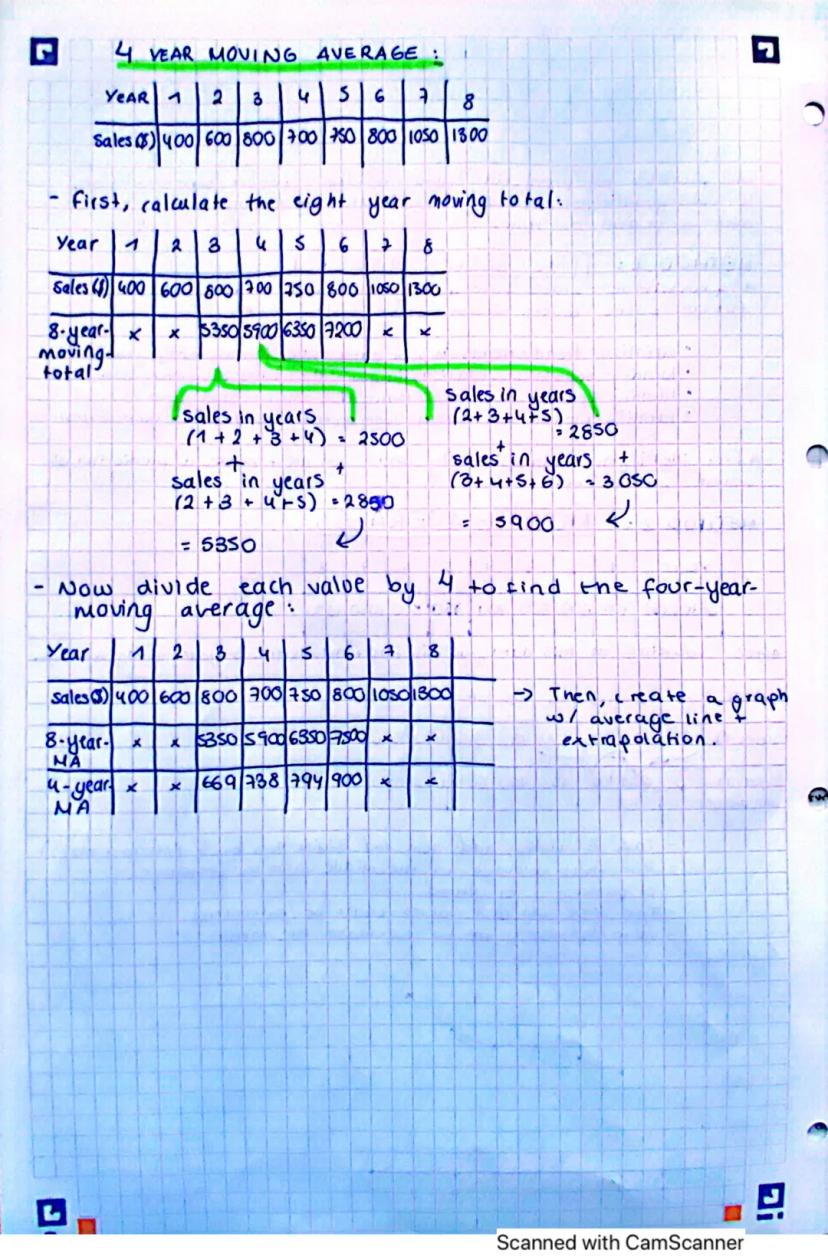 4 YEAR MOVING AVERAGE:
YEAR 1 2 3 4 5 6 7 8
Sales ($) 400 600 800 700 750 800 1050 1300
- First, calculate the eight year moving total:
Year 1 2 3 4 5 6 7 8
Sales ($) 400 600 800 700 750 800 1050 1300
8-year- x x 5350 5900 6350 7200 x x
moving-
total
sales in years
(1 + 2 + 3 + 4) = 2500
+ +
sales in years
(2 + 3 + 4 + 5) = 2850
= 5350
sales in years
(2+3+4+5)
= 2850
+
sales in years +
(3+4+5+6) = 3050
= 5900
- Now divide each value by 4 to find the four-year-
moving average:
Year 1 2 3 4 5 6 7 8
Sales ($) 400 600 800 700 750 800 1050 1300
8-year- x x 5350 5900 6350 7500 x x
MA
4-year- x x 669 738 794 900 x x
MA
→ Then, create a graph
w/ average line +
extrapolation.
Scanned with CamScanner